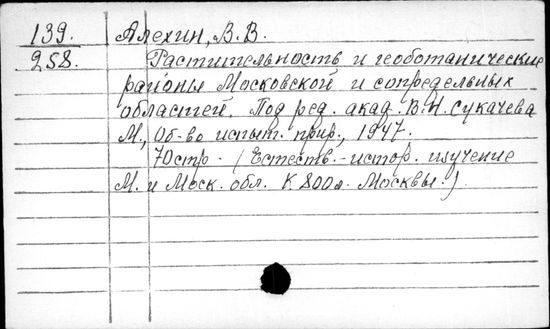 139. Алехин, В. В.
258. Растительность и геоботанические
районы Московской и сопредельных
областей. Под ред. акад. В. Н. Сукачева
М., Об-во испыт. прир., 1947.
70стр. - (Естеств.-истор. изучение
М. и Моск. обл. К 800л. Москвы.)